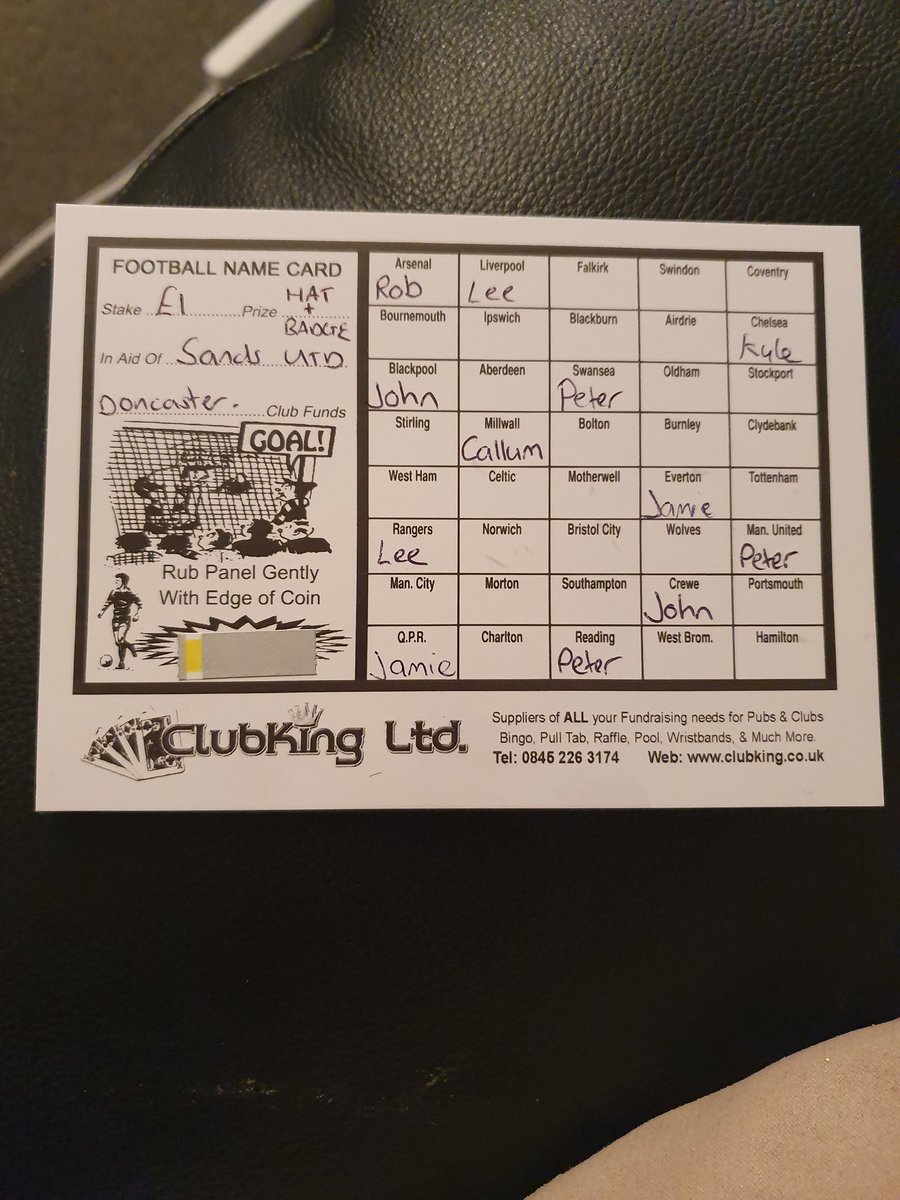 FOOTBALL NAME CARD
Stake £1 Prize HAT
+
BADGE
In Aid Of Sands UTD
Doncaster. Club Funds
GOAL!
Rub Panel Gently
With Edge of Coin
Arsenal Liverpool Falkirk Swindon Coventry
Rob Lee
Bournemouth Ipswich Blackburn Airdrie Chelsea
Kyle
Blackpool Aberdeen Swansea Oldham Stockport
John Peter
Stirling Millwall Bolton Burnley Clydebank
Callum
West Ham Celtic Motherwell Everton Tottenham
Jamie
Rangers Norwich Bristol City Wolves Man. United
Lee Peter
Man. City Morton Southampton Crewe Portsmouth
John
Q.P.R. Charlton Reading West Brom. Hamilton
Jamie Peter
ClubKing Ltd.
Suppliers of ALL your Fundraising needs for Pubs & Clubs
Bingo, Pull Tab, Raffle, Pool, Wristbands, & Much More.
Tel: 0845 226 3174 Web: www.clubking.co.uk